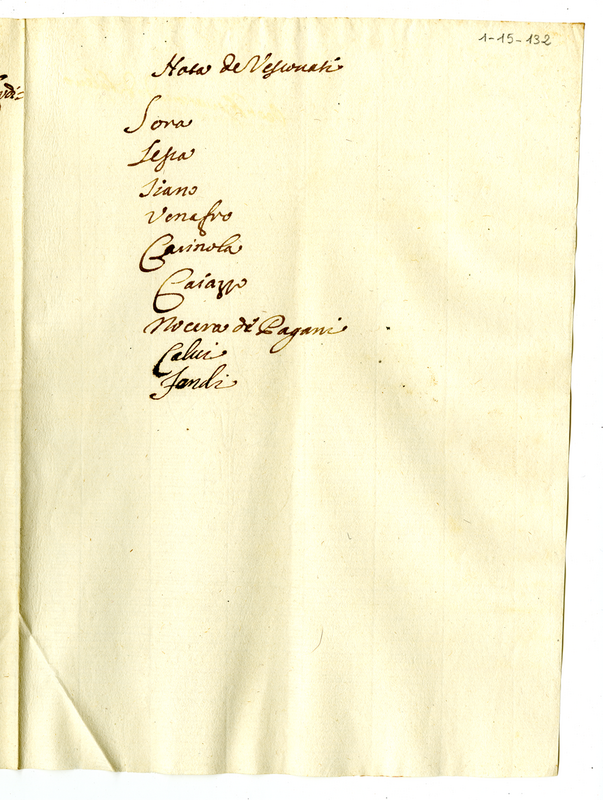 1-15-132
Nota de Vescouati
Sora
Sessa
Tiano
Venafro
Carinola
Caiazzo
Nocera de Pagani
Calui
Fondi